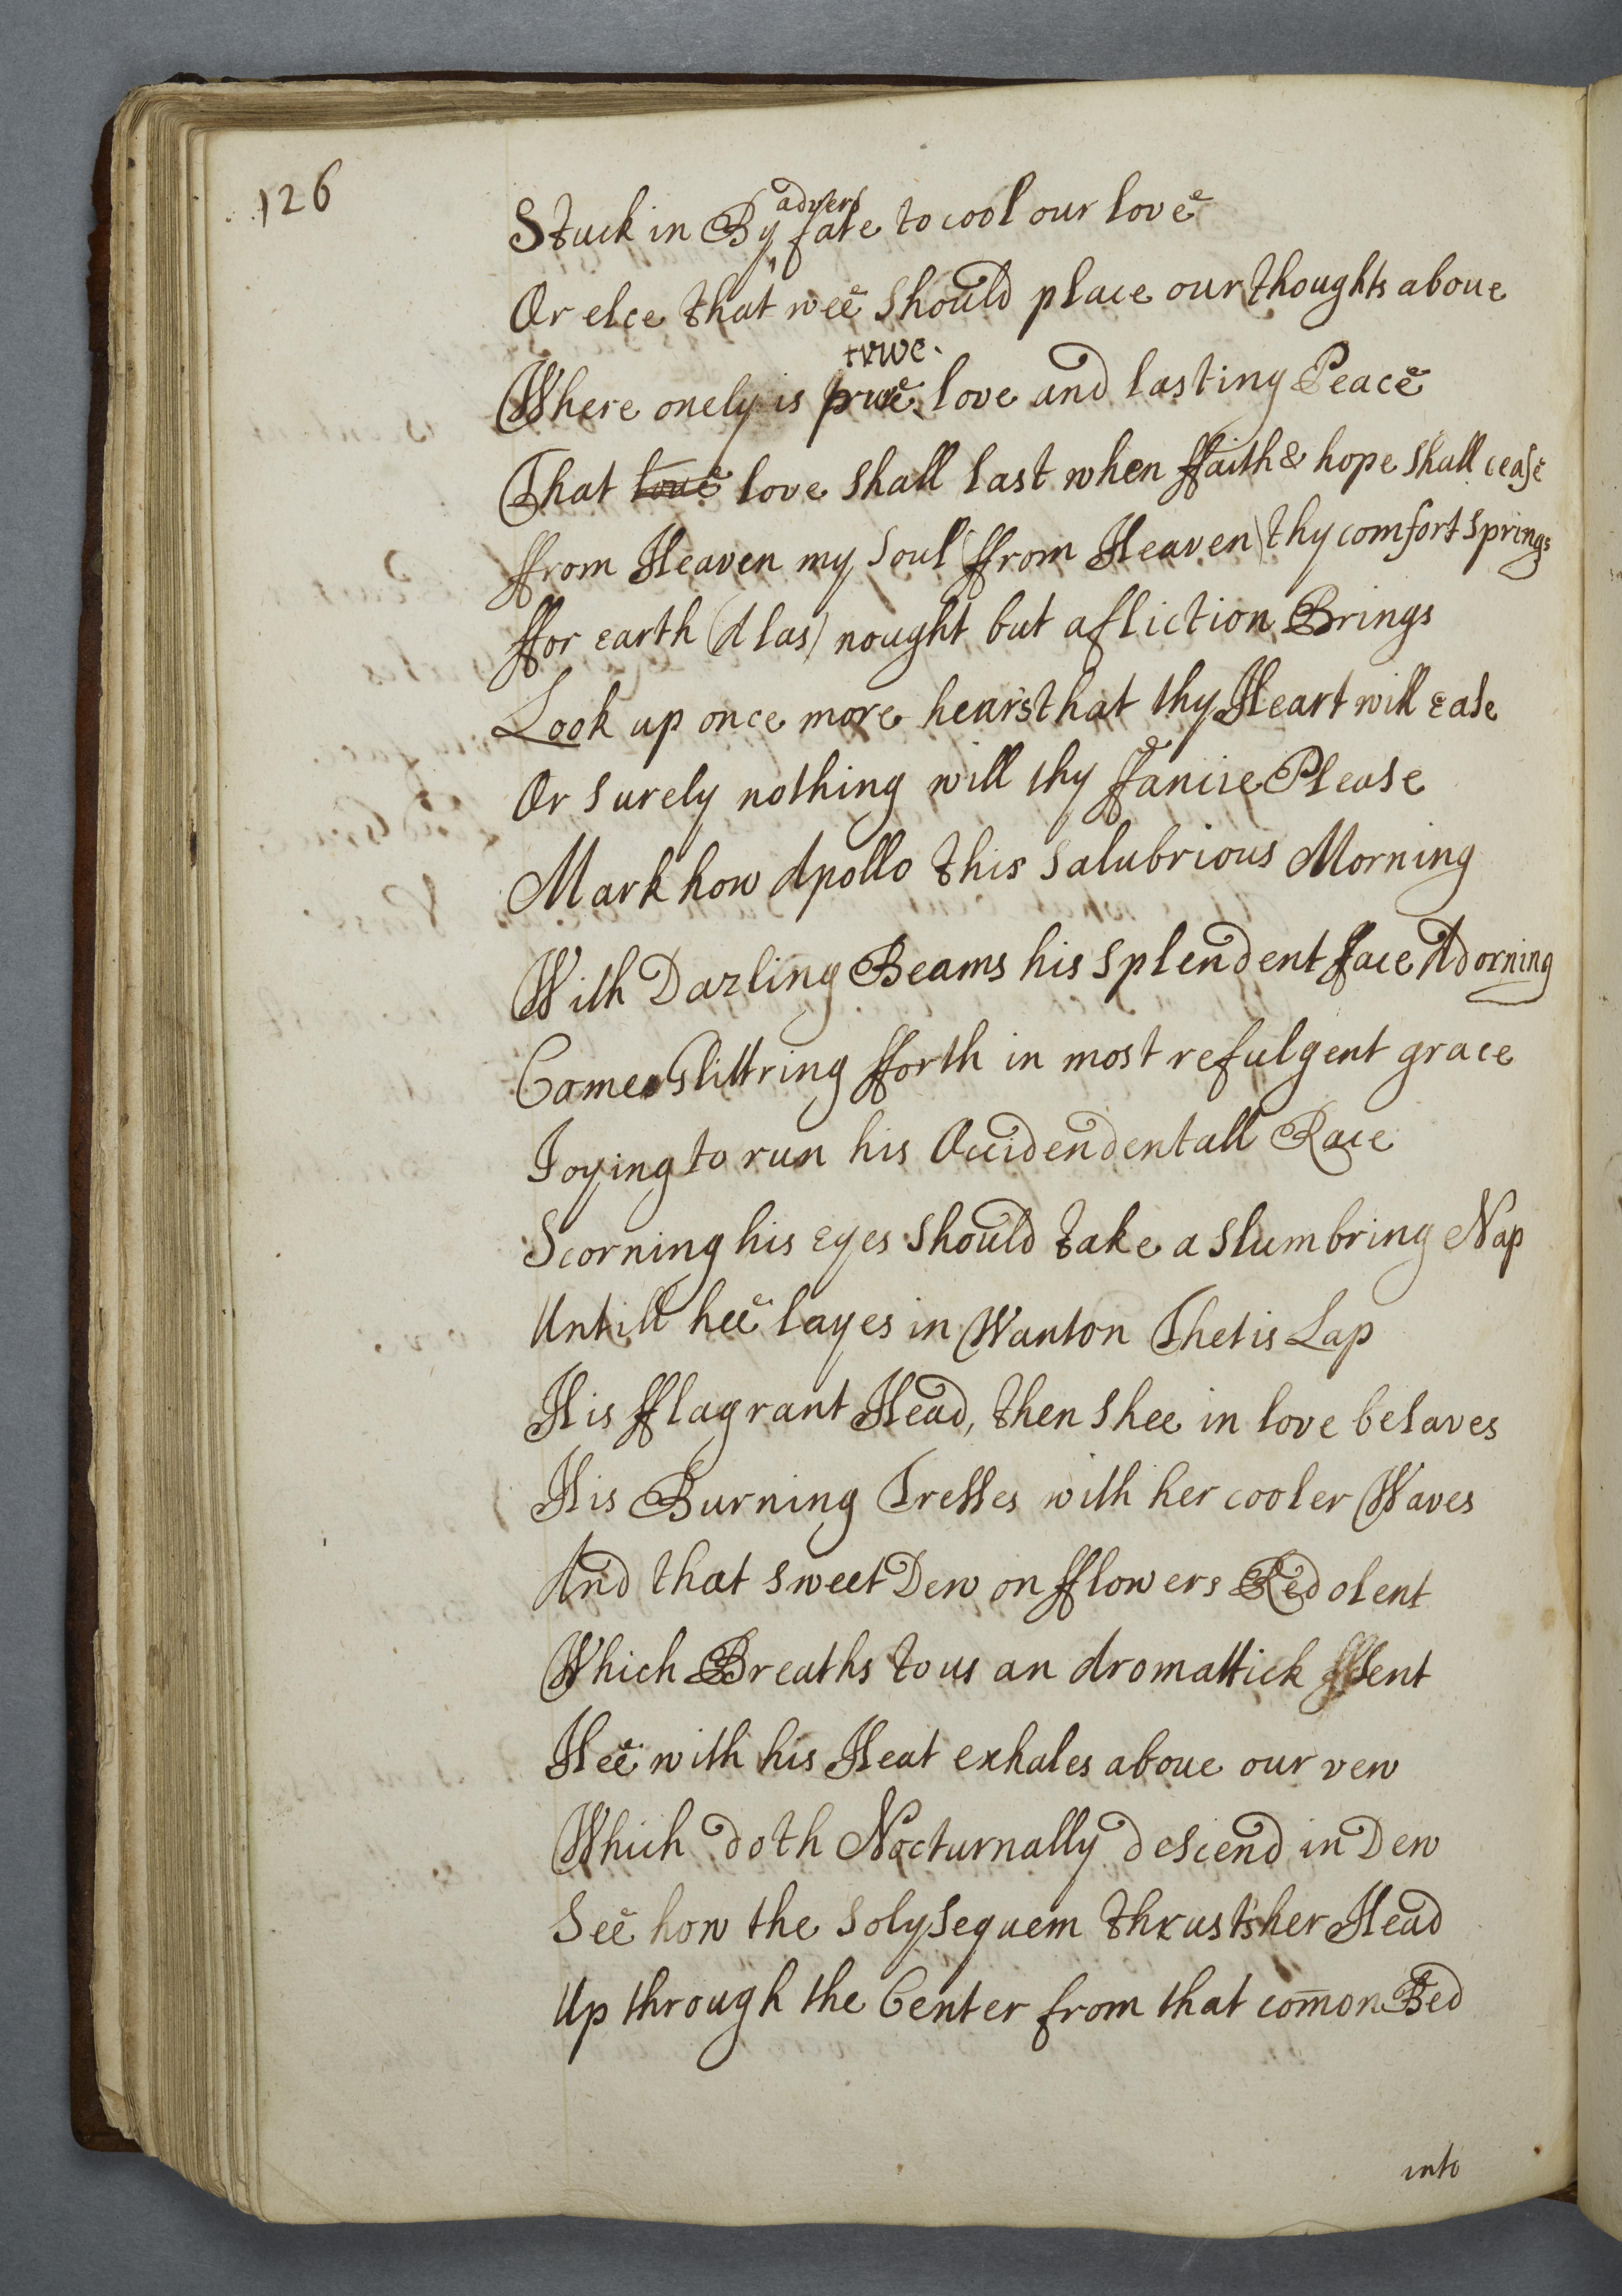 126
Stuck in By advers fate to cool our love
Or elce that wee should place our thoughts above
Where onely is true love and lasting Peace
That love love shall last when ffaith & hope shall cease
ffrom Heaven my Soul (ffrom Heaven) thy comfort springs
ffor earth (Alas) nought but afliction Brings
Look up once more hear's that thy Heart will ease
Or surely nothing will thy ffancie Please
Mark how Apollo this salubrious Morning
With Dazling Beams his splendent fface Adorning
Comes Glittring fforth in most refulgent grace
Joying to run his Occidendentall Race
Scorning his eyes should take a slumbring Nap
Untill hee layes in Wanton Thetis Lap
His fflagrant Head, then shee in love belaves
His Burning Tresses with her cooler Waves
And that sweet Dew on fflowers Redolent
Which Breaths to us an Aromattick Sent
Hee with his Heat exhales aboue our vew
Which doth Nocturnally descend in Dew
See how the Solysequem thrust's her Head
Up through the Center from that com̄on Bed
into